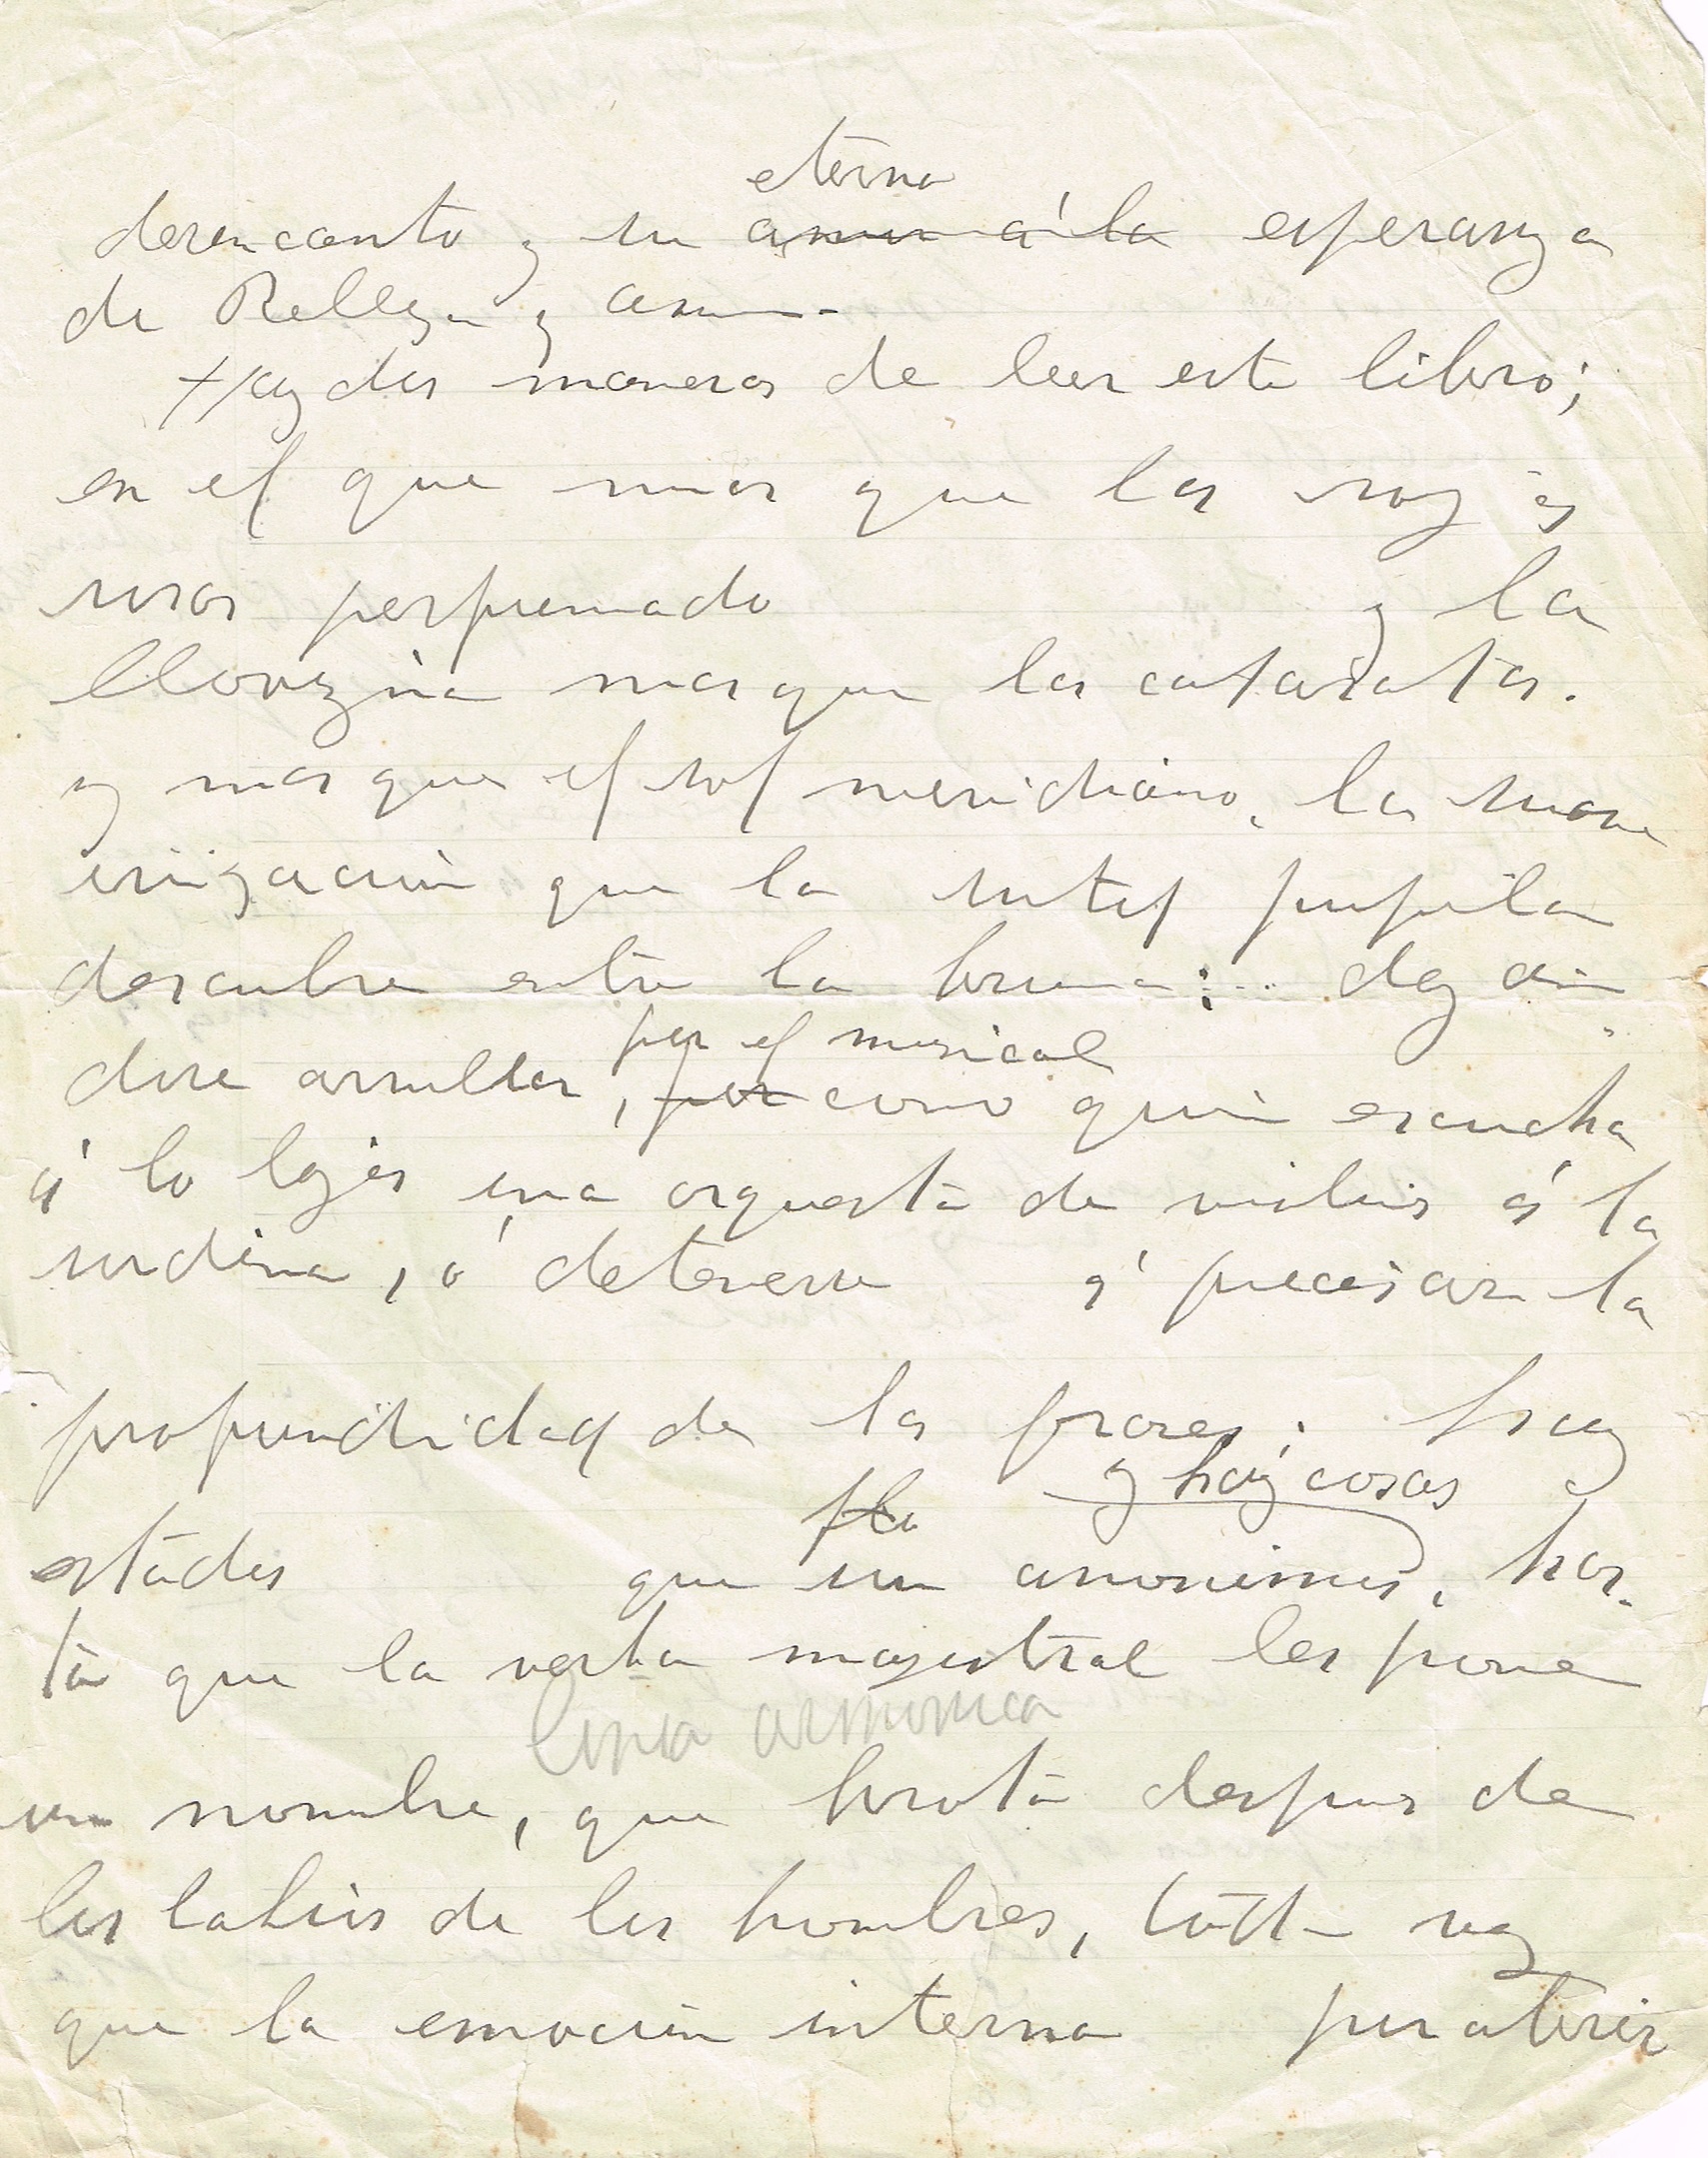 eterna
desencanto y su amor á la esperanza
de Belleza y amor.
Hay dos maneras de leer este libro;
en el que mas que las rojas
rosas perfumado y la
llovizna mas que las cataratas.
y mas que el sol meridiano, la suave
irizacion que la sutil pupila
descubre entre la bruma:
por el musical
arrullar, por como quien escucha
á lo lejos una orquesta de violines á la
surdina, ó detenerse á precisar la
profundidad de las frases; hay
y hay cosas
estados que son anonimos, has-
ta que la vesta magistral les pone
una armonica
un nombre, que brota despues de
los labios de los hombres, toda vez
que la emocion interna